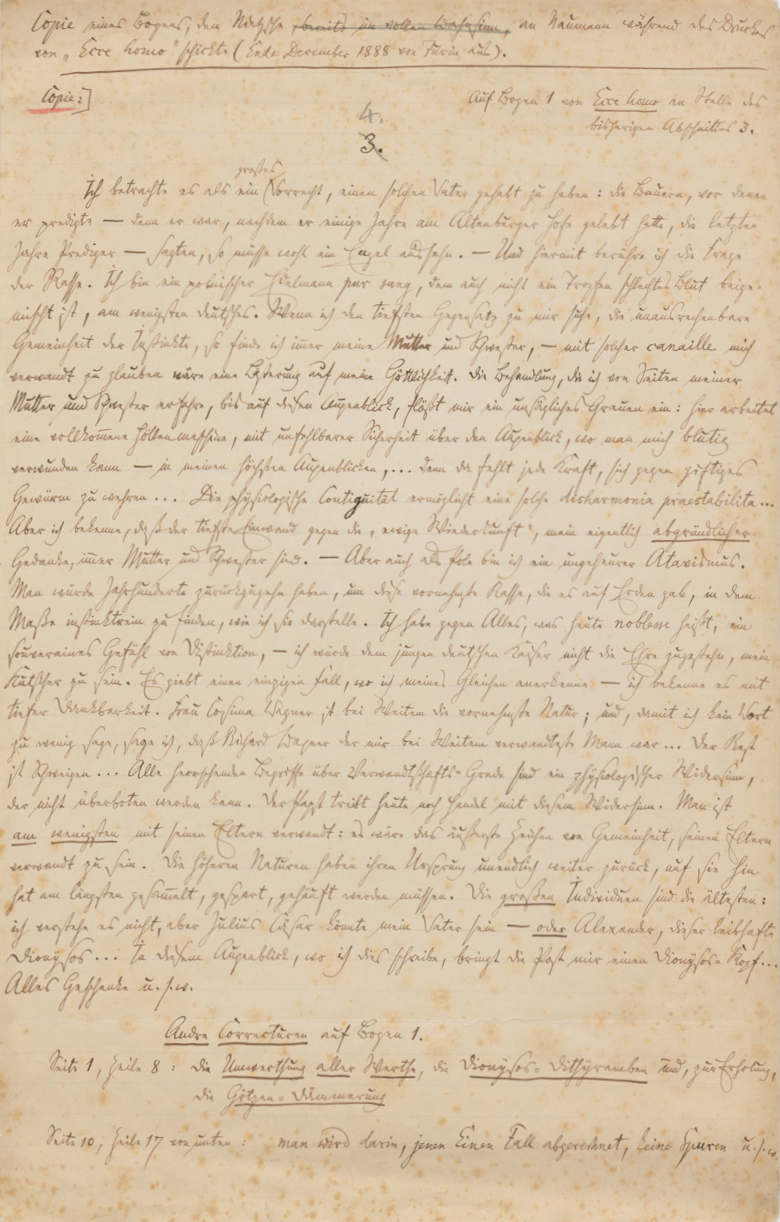 Copie eines Bogens, den Nietzsche bereits im vollen Wahnsinn, an Naumann während des Druckes
von „Ecce homo" schickte (Ende December 1888 von Turin aus).
Copie:]
Auf Bogen 1 von Ecce homo an Stelle des
bisherigen Abschnittes 3.
4.
3.
großes
Ich betrachte es als ein Vorrecht, einen solchen Vater gehabt zu haben: die Bauern, vor denen
er predigte — denn er war, nachdem er einige Jahre am Altenburger Hofe gelebt hatte, die letzten
Jahre Prediger — sagten, so müsse wohl ein Engel aussehn. — Und hiermit berühre ich die Frage
der Rasse. Ich bin ein polnischer Edelmann pur sang, dem auch nicht ein Tropfen schlechtes Blut beige-
mischt ist, am wenigsten deutsches. Wenn ich den tiefsten Gegensatz zu mir suche, die unausrechenbare
Gemeinheit der Instinkte, so finde ich immer meine Mutter und Schwester, — mit solcher canaille mich
verwandt zu glauben wäre eine Lästerung auf meine Göttlichkeit. Die Behandlung, die ich von Seiten meiner
Mutter und Schwester erfahre, bis auf diesen Augenblick, flößt mir ein unsägliches Grauen ein: hier arbeitet
eine vollkommene Höllenmaschine, mit unfehlbarer Sicherheit über den Augenblick, wo man mich blutig
verwunden kann — in meinen höchsten Augenblicken,... denn da fehlt jede Kraft, sich gegen giftiges
Gewürm zu wehren... Die physiologische Contiguität ermöglicht eine solche disharmonia praestabilita...
Aber ich bekenne, daß der tiefste Einwand gegen die „ewige Wiederkunft", mein eigentlich abgründlicher
Gedanke, immer Mutter und Schwester sind. — Aber auch als Pole bin ich ein ungeheurer Atavismus.
Man würde Jahrhunderte zurückzugehn haben, um diese vornehmste Rasse, die es auf Erden gab, in dem
Maße instinktrein zu finden, wie ich sie darstelle. Ich habe gegen Alles, was heute noblesse heißt, ein
souveraines Gefühl von Distinktion, — ich würde dem jungen deutschen Kaiser nicht die Ehre zugestehn, mein
Kutscher zu sein. Es giebt einen einzigen Fall, wo ich meines Gleichen anerkenne — ich bekenne es mit
tiefer Dankbarkeit. Frau Cosima Wagner ist bei Weitem die vornehmste Natur; und, damit ich kein Wort
zu wenig sage, sage ich, daß Richard Wagner der mir bei Weitem verwandteste Mann war... Der Rest
ist Schweigen... Alle herrschenden Begriffe über Verwandtschafts-Grade sind ein physiologischer Widersinn,
der nicht überboten werden kann. Der Papst treibt heute noch Handel mit diesem Widersinn. Man ist
am wenigsten mit seinen Eltern verwandt: es wäre das äußerste Zeichen von Gemeinheit, seinen Eltern
verwandt zu sein. Die höheren Naturen haben ihren Ursprung unendlich weiter zurück, auf sie hin
hat am längsten gesammelt, gespart, gehäuft werden müssen. Die großen Individuen sind die ältesten:
ich verstehe es nicht, aber Julius Cäsar könnte mein Vater sein — oder Alexander, dieser leibhafte
Dionysos... In diesem Augenblick, wo ich dies schreibe, bringt die Post mir einen Dionysos-Kopf...
Alles Geschenke u. s. w.
Andre Correcturen auf Bogen 1.
Seite 1, Zeile 8: die Umwerthung aller Werthe, die Dionysos-Dithyramben und, zur Erholung,
die Götzen-Dämmerung
Seite 10, Zeile 17 von unten: man wird darin, jenen Einen Fall abgerechnet, keine Spuren u. s. w.